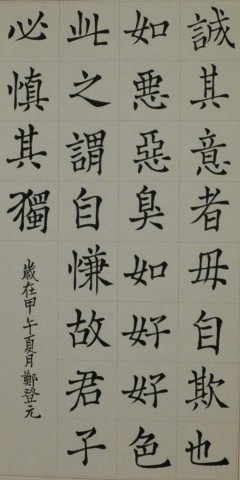 誠其意者毋自欺也
如惡惡臭如好好色
此之謂自慊故君子
必慎其獨
歲在甲午夏月鄭登元